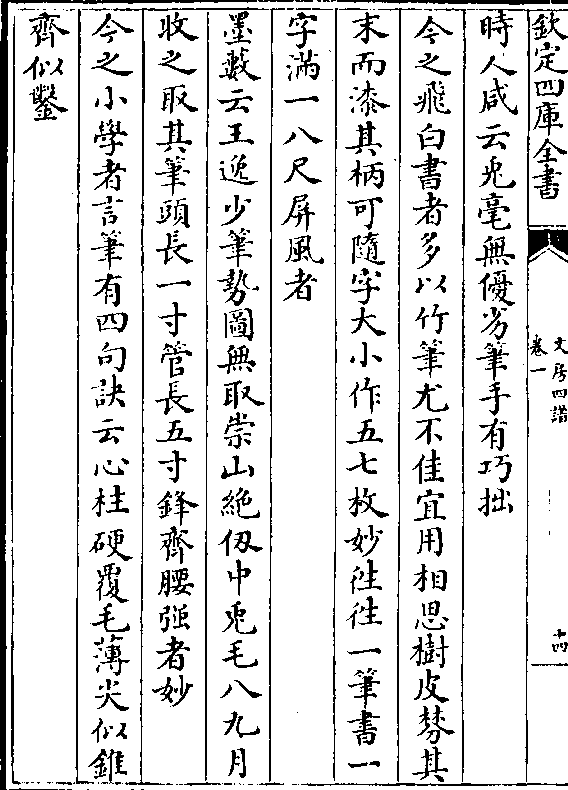 欽定四庫全書
文房四譜
卷一
十四
時人咸云兎毫無優劣筆手有巧拙
今之飛白書者多以竹筆尤不佳宜用相思樹皮棼其
末而漆其柄可隨字大小作五七枚妙徃徃一筆書一
字滿一八尺屏風者
墨藪云王逸少筆勢圖無取崇山絶仭中兎毛八九月
收之取其筆頭長一寸管長五寸鋒齊腰强者妙
今之小學者言筆有四句訣云心柱硬覆毛薄尖似錐
齊似鑿